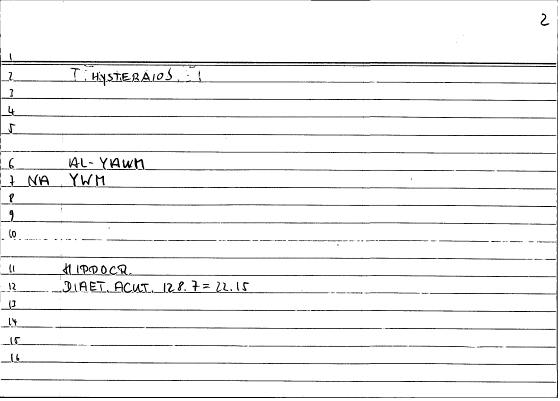 2
1
2 T: HYSTERAIOS. :
3
4
5
6 AL-YAWM
7 NA YWM
8
9
10
11 HIPPOCR.
12 DIAET. ACUT. 128.7=22.15
13
14
15
16